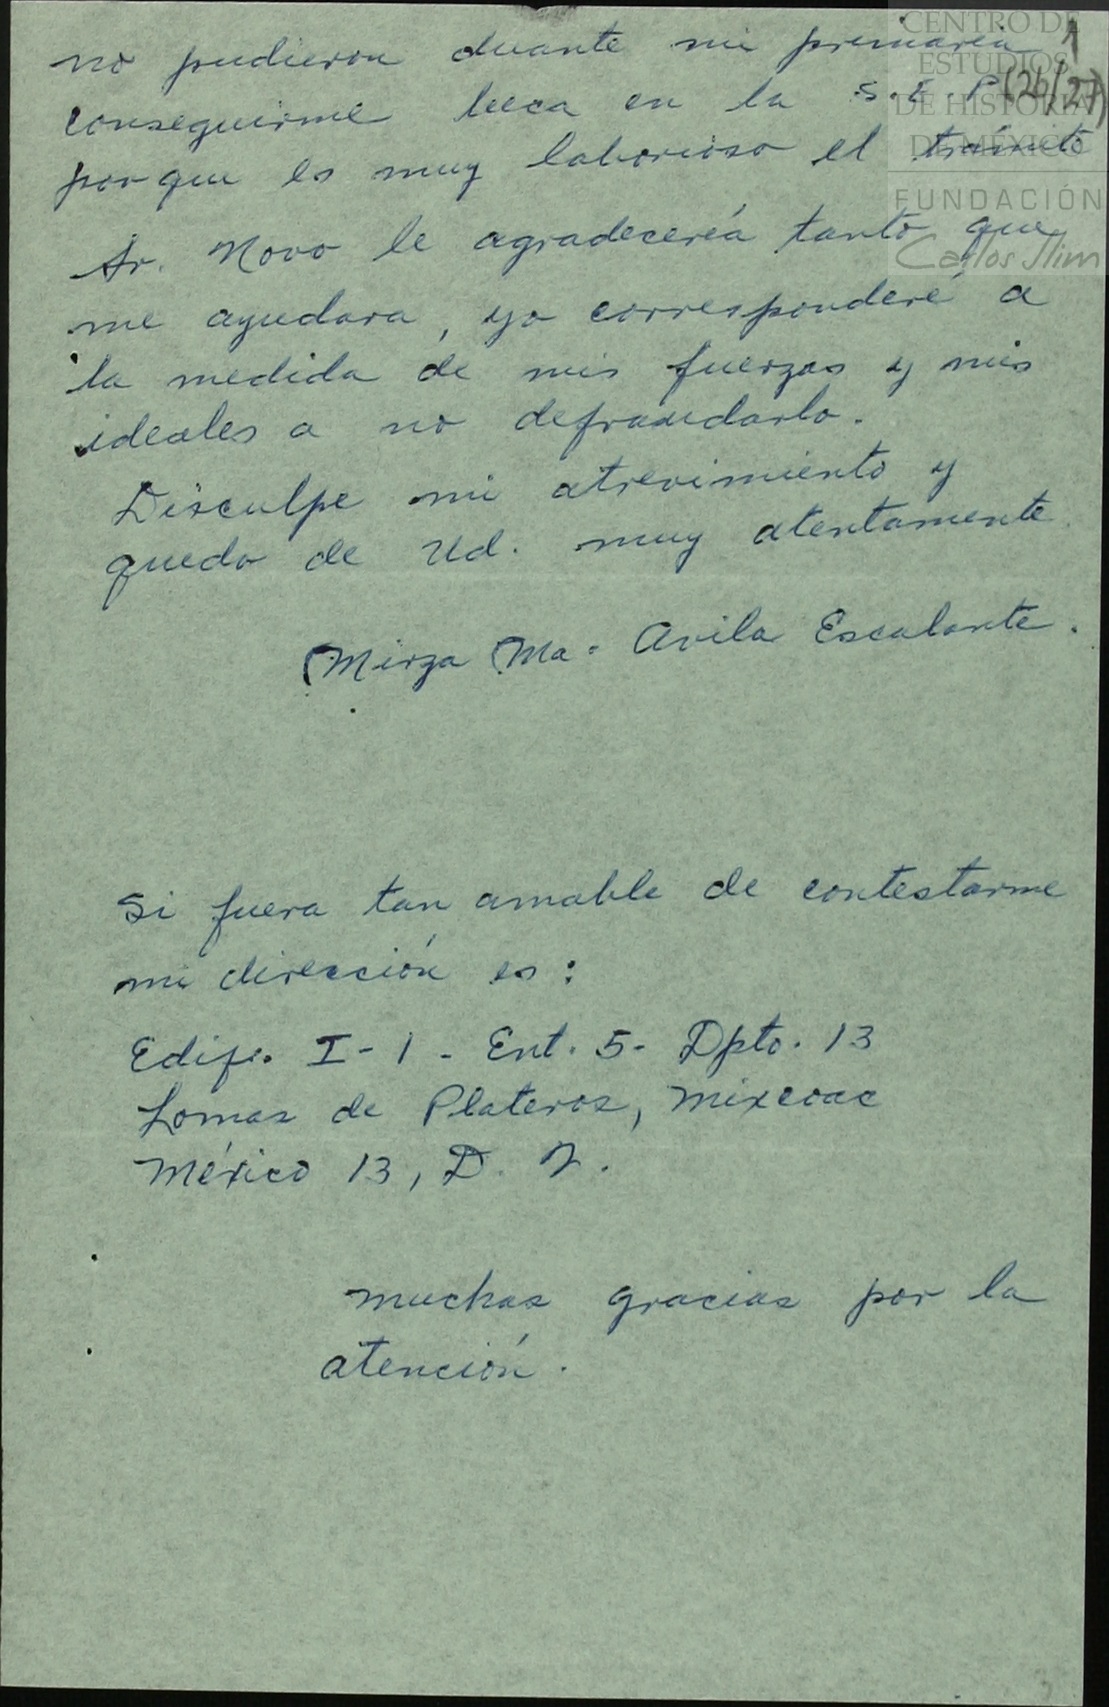 no pudieron duante mi primaria
conseguirme beca en la S.E.P.
porque es muy laborioso el trámite
Sr. Novo le agradecería tanto que
me ayudara, yo corresponderé a
la medida de mis fuerzas y mis
ideales a no defraudarlo.
Disculpe mi atrevimiento y
quedo de Ud. muy atentamente.
Mirza Ma. Avila Escalante.
Si fuera tan amable de contestarme
mi dirección es:
Edif. I-1 - Ent. 5- Dpto. 13
Lomas de Plateros, Mixcoac
México 13, D. F.
muchas gracias por la
atención.
1
(26/27)
CENTRO DE
ESTUDIOS
DE HISTORIA
DE MÉXICO
FUNDACIÓN
Carlos Slim